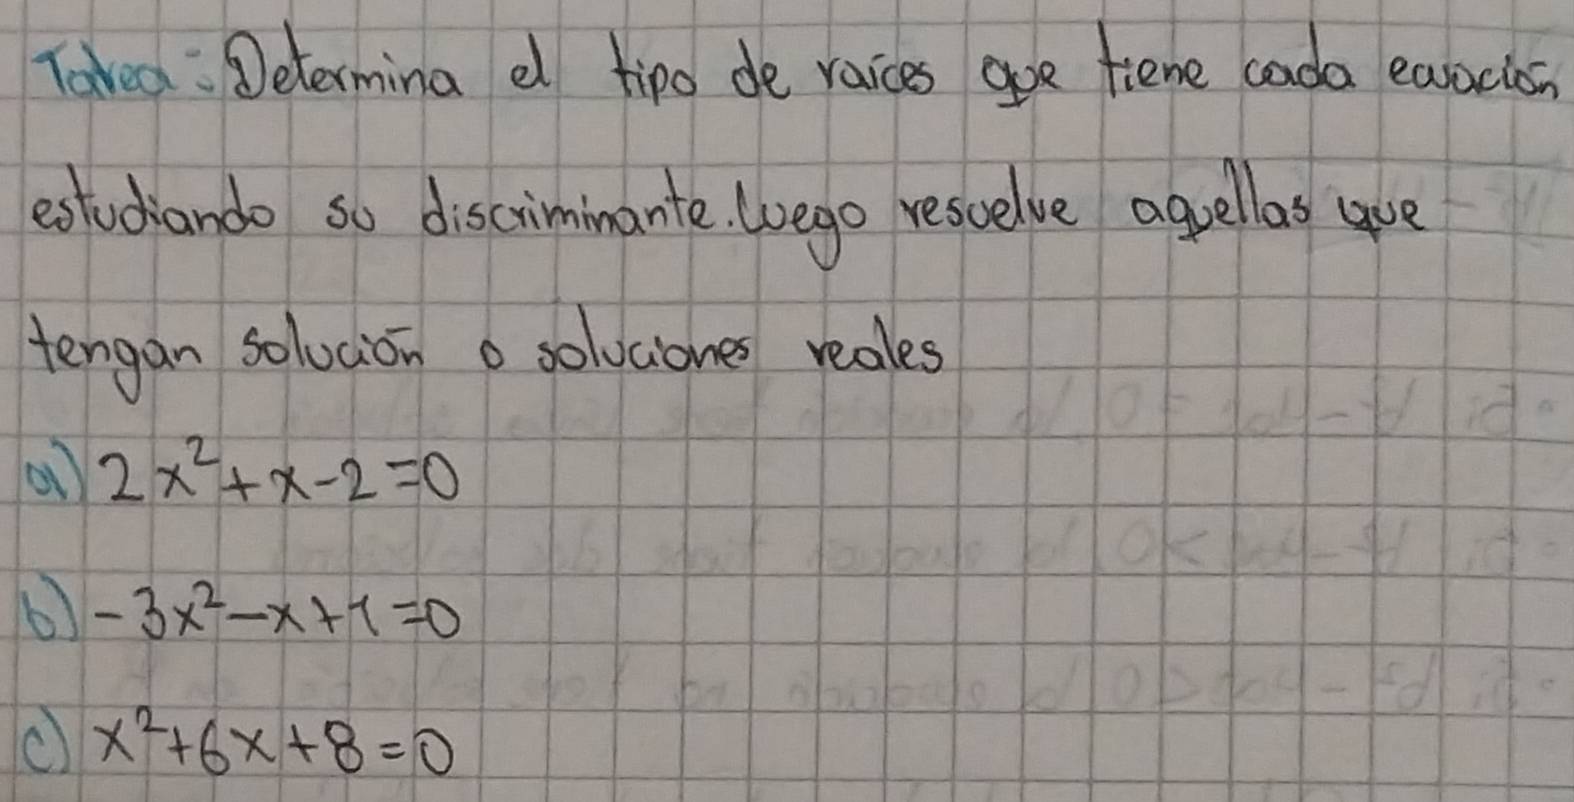 Tarea: Determina el tipo de raíces que tiene cada ecuación
estudiando su discriminante. Luego resuelve aquellas que
tengan solución o soluciones reales
a) 2x² + x - 2 = 0
b) - 3x² - x + 1 = 0
c) x² + 6x + 8 = 0